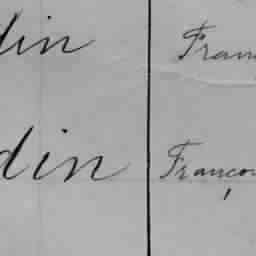 din Franç
din Françoi